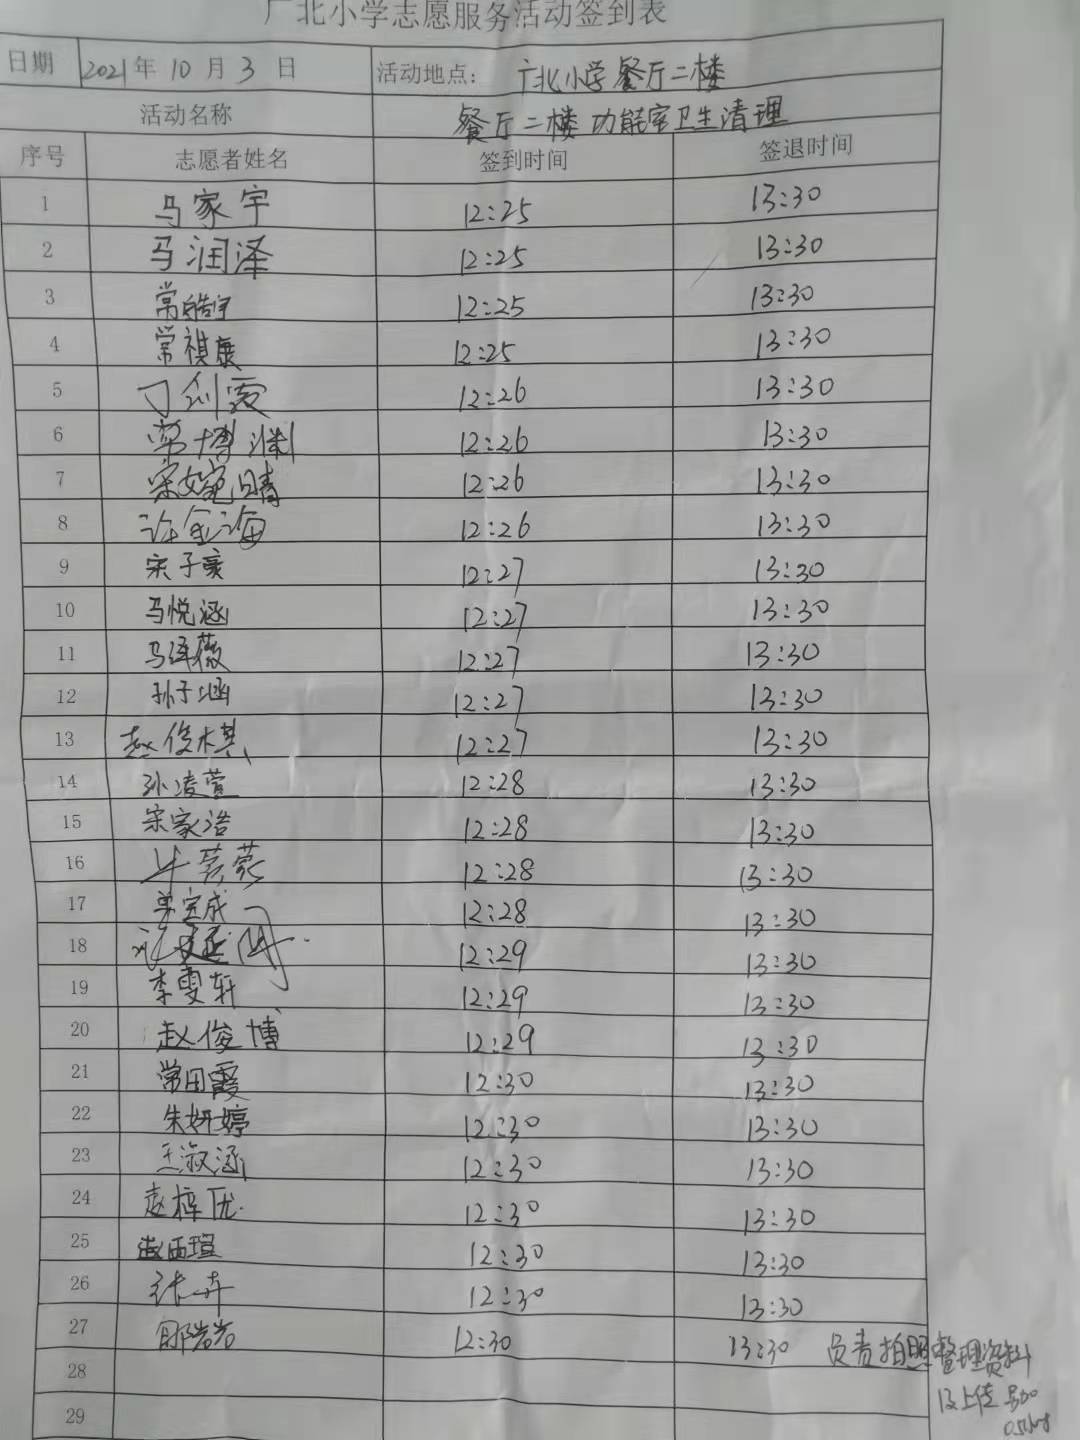 广北小学志愿服务活动签到表
日期 2021年10月3日 活动地点： 广北小学餐厅二楼
活动名称 餐厅二楼功能室卫生清理
序号 志愿者姓名 签到时间 签退时间
1 马家宇 12:25 13:30
2 马润泽 12:25 13:30
3 常皓宇 12:25 13:30
4 常祺康 12:25 13:30
5 12:26 13:30
6 常博渊 12:26 13:30
7 宋婉晴 12:26 13:30
8 许金海 12:26 13:30
9 宋子豪 12:27 13:30
10 马悦涵 12:27 13:30
11 马泽薇 12:27 13:30
12 孙子涵 12:27 13:30
13 赵俊棋 12:27 13:30
14 孙凌萱 12:28 13:30
15 宋家浩 12:28 13:30
16 12:28 13:30
17 单宝成 12:28 13:30
18 12:29 13:30
19 李雯轩 12:29 13:30
20 赵俊博 12:29 13:30
21 常田霞 12:30 13:30
22 朱妍婷 12:30 13:30
23 王淑涵 12:30 13:30
24 赵梓优 12:30 13:30
25 12:30 13:30
26 张卉 12:30 13:30
27 邵岩岩 12:30 13:30 负责拍照整理资料
及上传
28
29